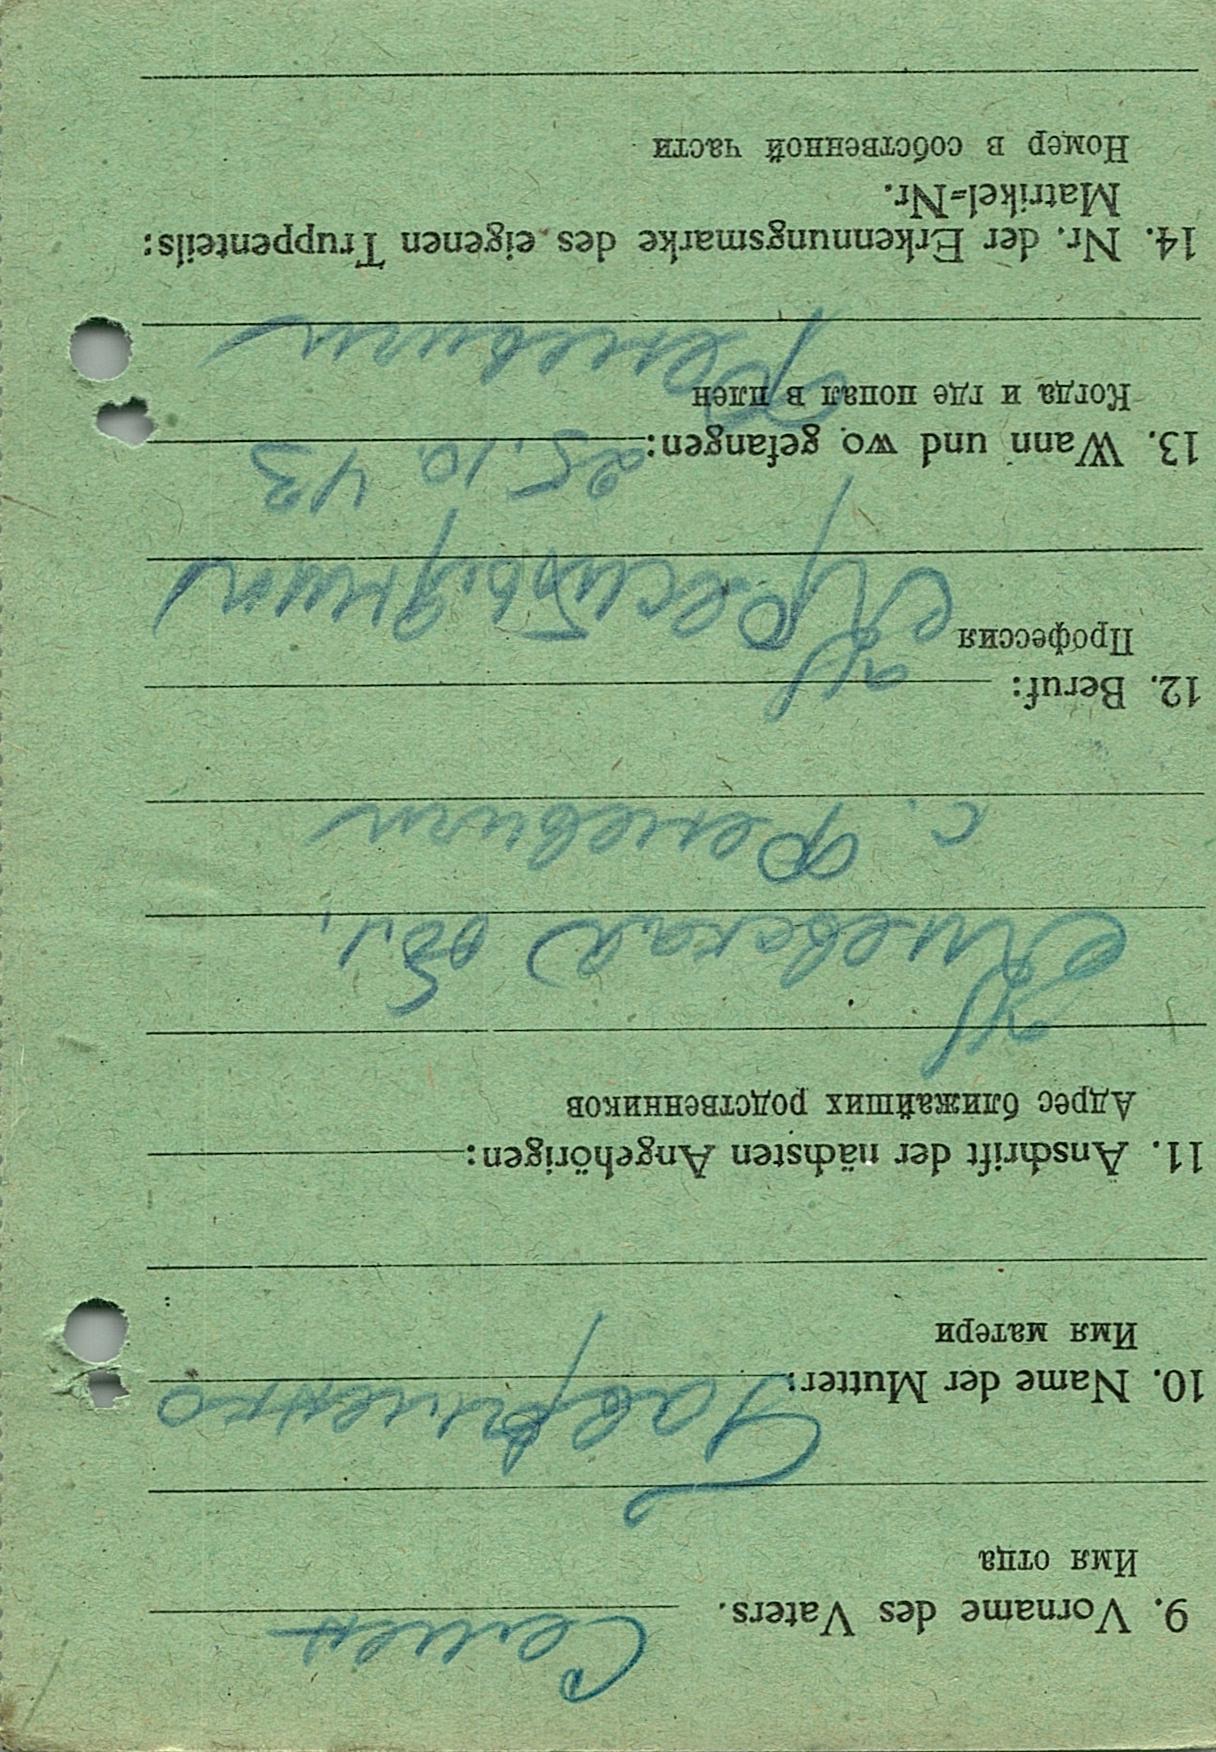 9. Vorname des Vaters.
Имя отца
Семен
10. Name der Mutter:
Имя матери
Гавриленко
11. Anschrift der nächsten Angehörigen:
Адрес ближайших родственников
Киевская обл.
с.
12. Beruf:
Профессия
Крестьянин
13. Wann und wo gefangen:
25.10.43
Когда и где попал в плен
14. Nr. der Erkennungsmarke des eigenen Truppenteils:
Matrikel=Nr.
Номер в собственной части